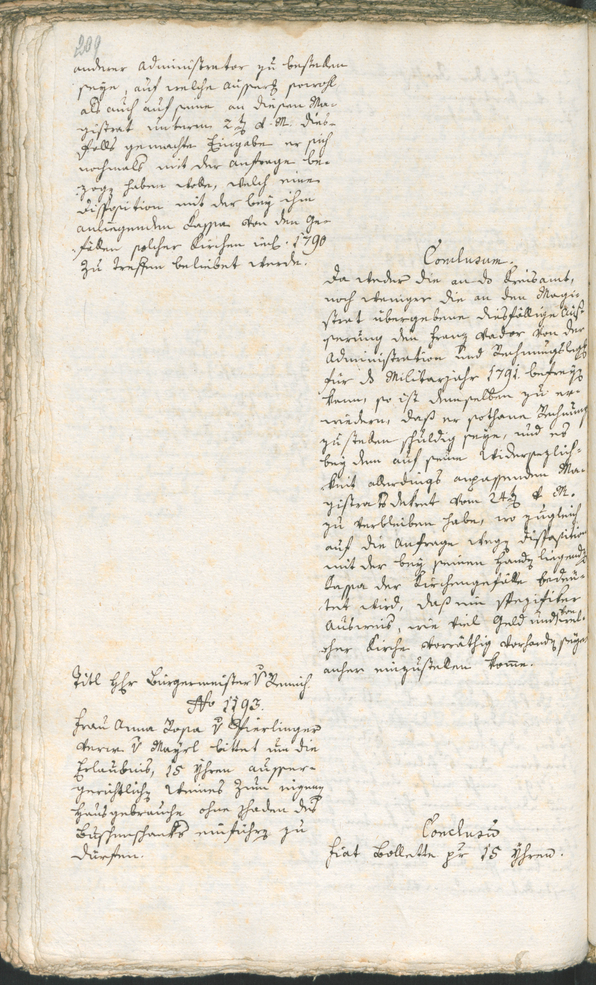 209
anderer Administrator zu bestellen
seye, auf welche Aussage sowohl
als auch auf seine an diesen Ma-
gistrat unterm 2ten d. M. dies-
falls gemachte Eingabe er sich
nochmals mit der Anfrage be-
zogen haben wolle, welch eine
Disposition mit der bey ihm
anliegenden Kassa von den Ge-
fällen solcher Kirchen 1790
zu treffen beliebet werde.
Conclusum.
Da weder die an das Kreisamt,
noch weniger die an den Magi-
strat übergebene diesfällige Äus-
serung den Franz von der
Administration und Rechnungslegung
für das Militarjahr 1791 befreyen
kann, so ist demselben zu er-
wiedern, daß er sothane Rechnung
zu stellen schuldig seye, und es
bey dem auf seine Widersezlich-
keit allerdings anpassenden Ma-
gistratsdekret vom 24ten d. M.
zu verbleiben habe, wo zugleich
auf die Anfrage wegen Disposition
mit der bey seinen Handen liegenden
Kassa der Kirchengefälle bedeu-
tet wird, daß ein spezifiker
Ausweis, wie viel Geld und von wel-
cher Kirche vorräthig vorhanden seye
anher einzustellen komme.
Titl Hhr Bürgermeister v
No 1193.
Frau Anna Rosa v
verw. v Mayrl bittet um die
Erlaubnis, 15 Yhren ausser-
gerichtlichen Weines zum eigenen
Hausgebrauche ohne schaden des
Buschenschanks einführen zu
dürfen.
Conclusum
Fiat Bollette pr 15 Yhren.